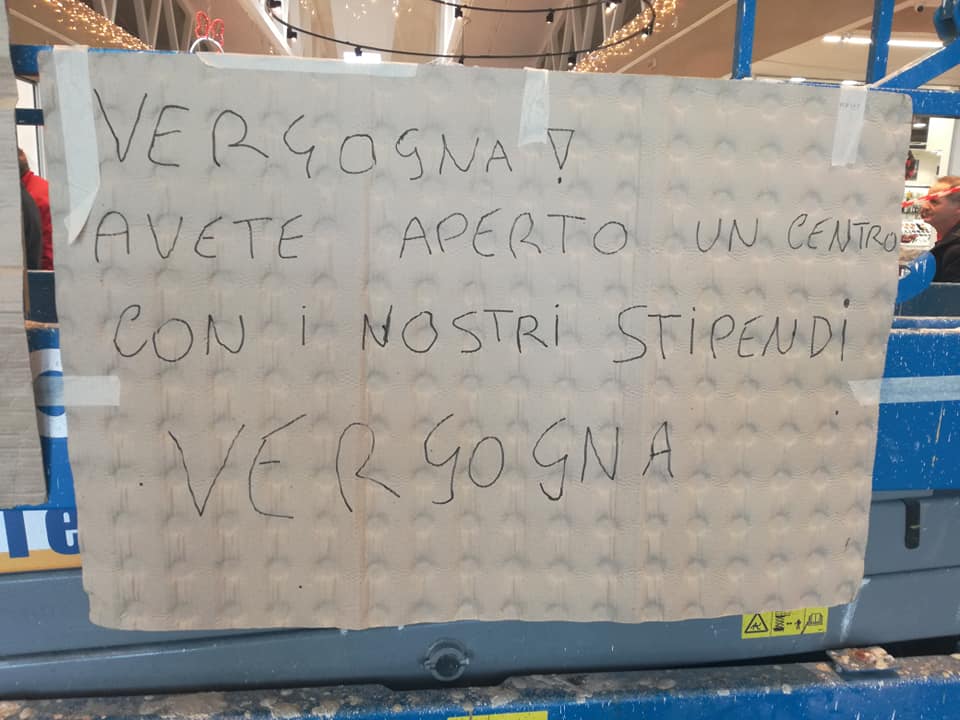 VERGOGNA!
AVETE APERTO UN CENTRO
CON I NOSTRI STIPENDI
VERGOGNA
re